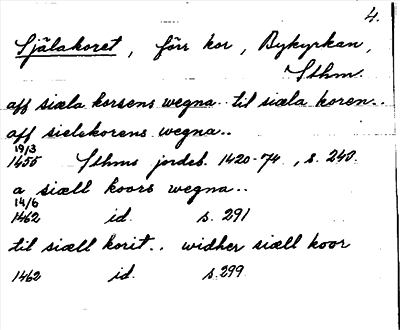 4.
Själakoret, förr kor, Bykyrkan,
Sthm.
aff siæla korsens wegna.. til siæla koren..
aff sielekorens wegna..
19/3
1455 Sthms jordeb. 1420-74, s. 240.
a siæll koors wegna..
14/6
1462 id. s. 291
til siæll korit.. widher siæll koor
1462 id. s. 299